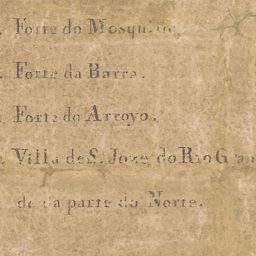 Forte do Mosquito.
Forte da Barra.
Forte do Arroyo.
Villa de S. Joze do Rio Gran
de da parte do Norte.